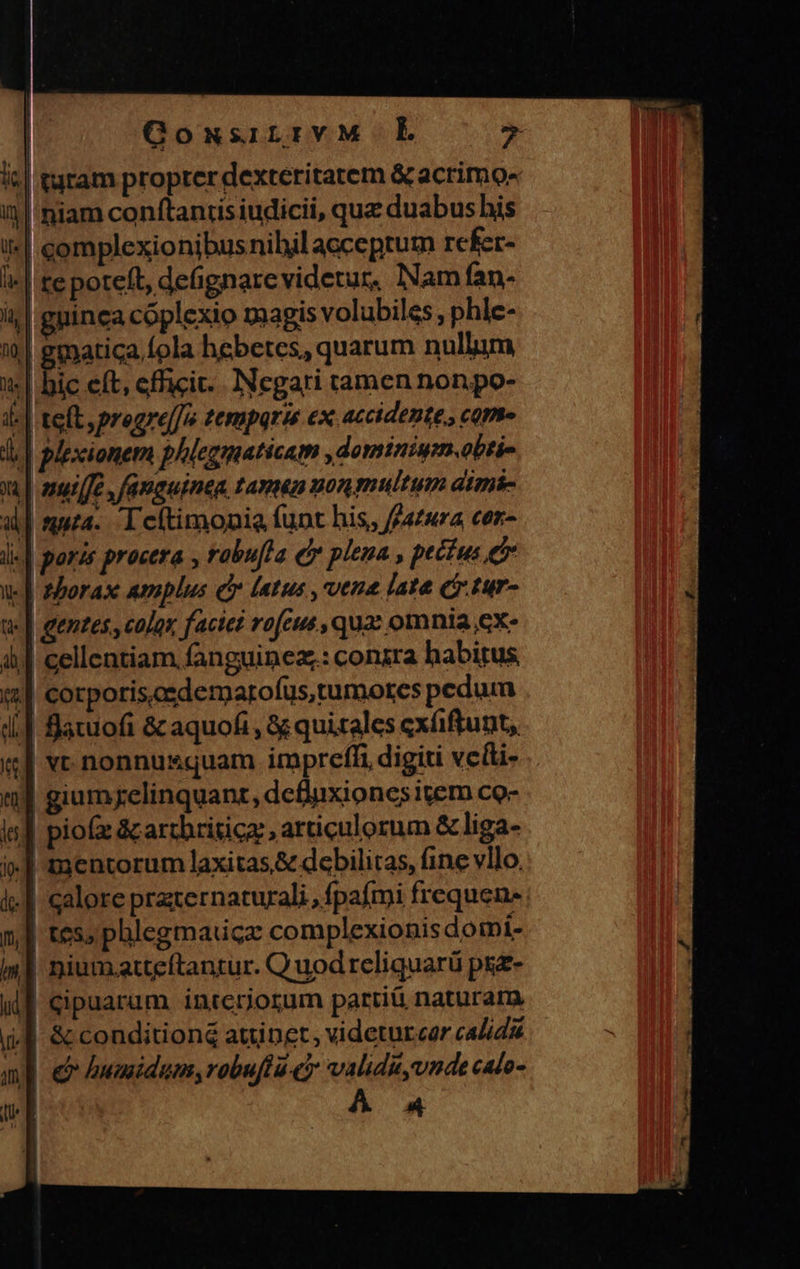 CONSILIVM I. 7
turam propter dexteritatem & acrimo-
niam conſtantis iudicii, quæ duabus his
complexionibus nihil acceptum refer-
re poteſt, deſignare videtur. Nam ſan-
guinea cōplexio magis volubiles, phle-
gmatica ſola hebetes, quarum nullum
hic eſt, efficit. Negari tamen non po-
teſt, progreſſu temporis ex accidente, com-
plexionem phlegmaticam, dominium obti-
nuiſſe, ſanguinea tamen non multum dimi-
nuta. Teſtimonia ſunt his, ſtatura cor-
poris procera, robuſta & plena, pectus &
thorax amplus & latus, venæ latæ & tur-
gentes, color faciei roſeus, quæ omnia ex-
cellentiam ſanguineæ: contra habitus
corporis œdematoſus, tumores pedum
flatuoſi & aquoſi, & quitales exſiſtunt,
vt nonnunquam impreſſi digiti veſti-
gium relinquant, defluxiones item co-
pioſæ & arthriticæ, articulorum & liga-
mentorum laxitas, & debilitas, ſine vllo
calore præternaturali, ſpaſmi frequen-
tes, phlegmaticæ complexionis domi-
nium atteſtantur. Quod reliquarū præ-
cipuarum interiorum partiū naturam
& conditionē attinet, videtur cor calidū
& humidum, robuſtū & validū, vnde calo-
A 4